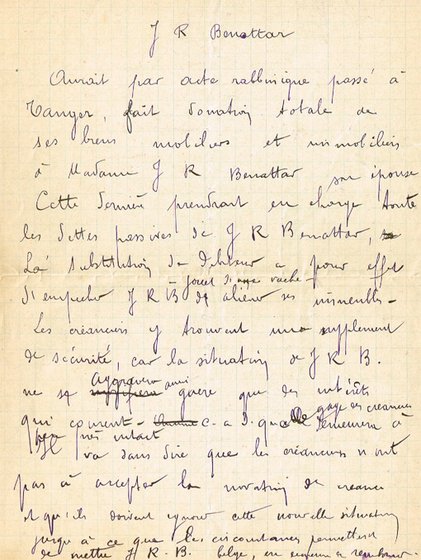 J R Benattar
Aurait par acte rabbinique passé à
Tanger, fait donation totale de
ses biens mobiliers et immobiliers
à Madame J R Benattar son épouse
Cette dernière prendrait en charge toute
les dettes passives de J R Benattar,
La substitution de débiteur a pour effet
d'empecher J R B d'aliener ses immeubles -
Les créanciers y trouvent un supplement
de sécurité, car la situation de J R B.
ne s'aggrave ainsi guère que des intérêts
qui courent - c-a-d. que le gage des creanciers demeurera à
peu près intact
Il va sans dire que les créanciers n'ont
pas à accepter la novation de creance
et qu'ils doivent ignorer cette nouvelle situation
jusqu'à ce que les circonstances permettent
de mettre J. R. B. en mesure